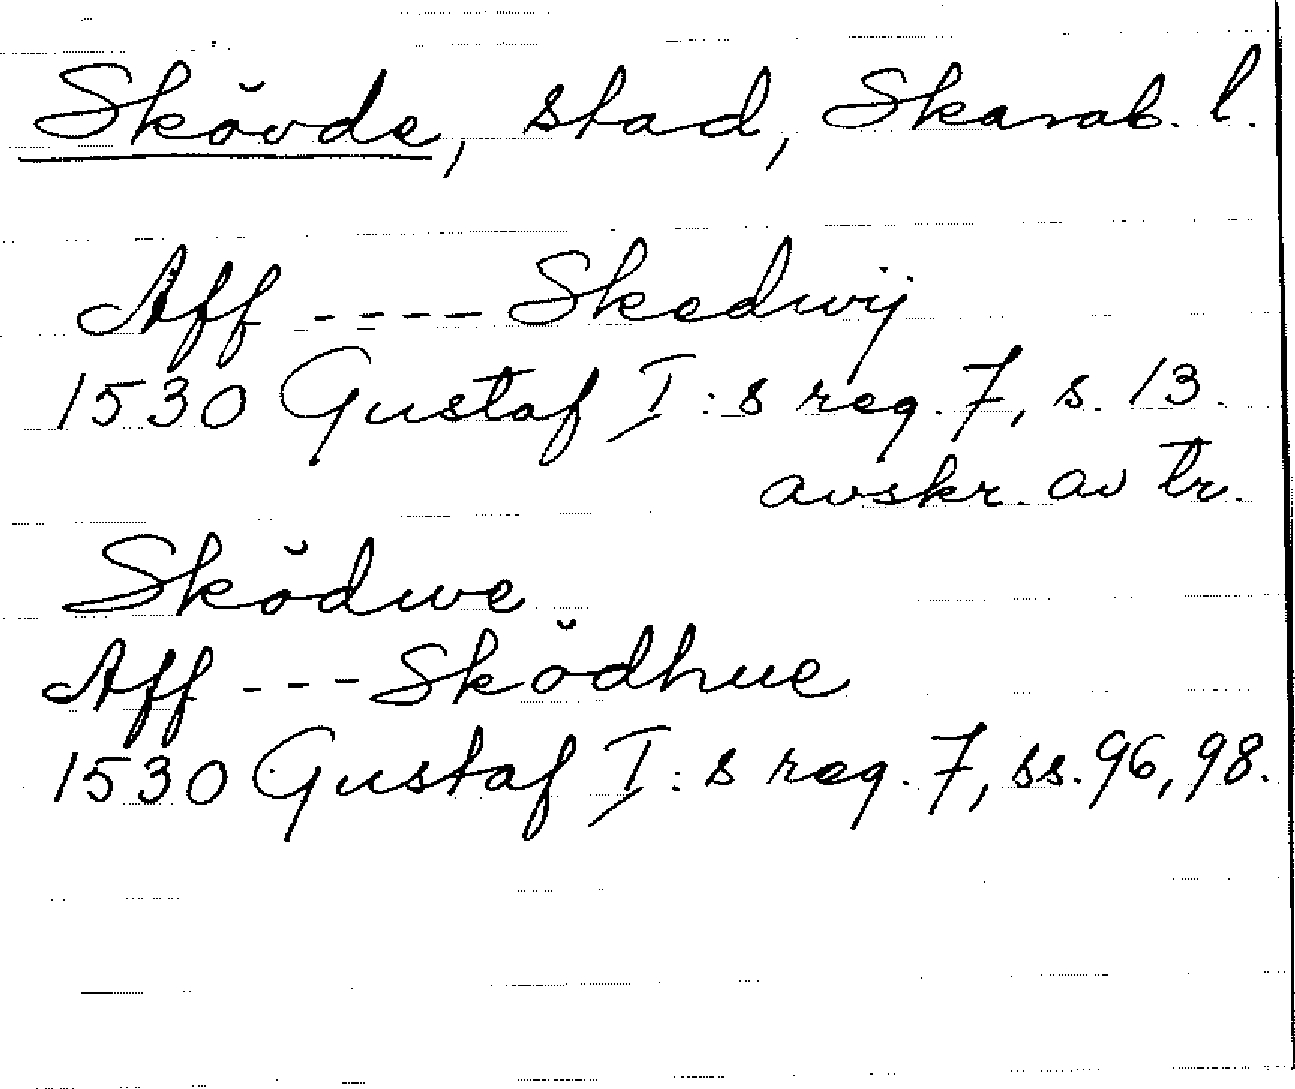 Skövde, stad, Skarab. l.
Aff ---- Skedwij
1530 Gustaf I:s reg. 7, s. 13.
avskr. av tr.
Sködwe
Aff --- Sködhue
1530 Gustaf I:s reg. 7, ss. 96, 98.